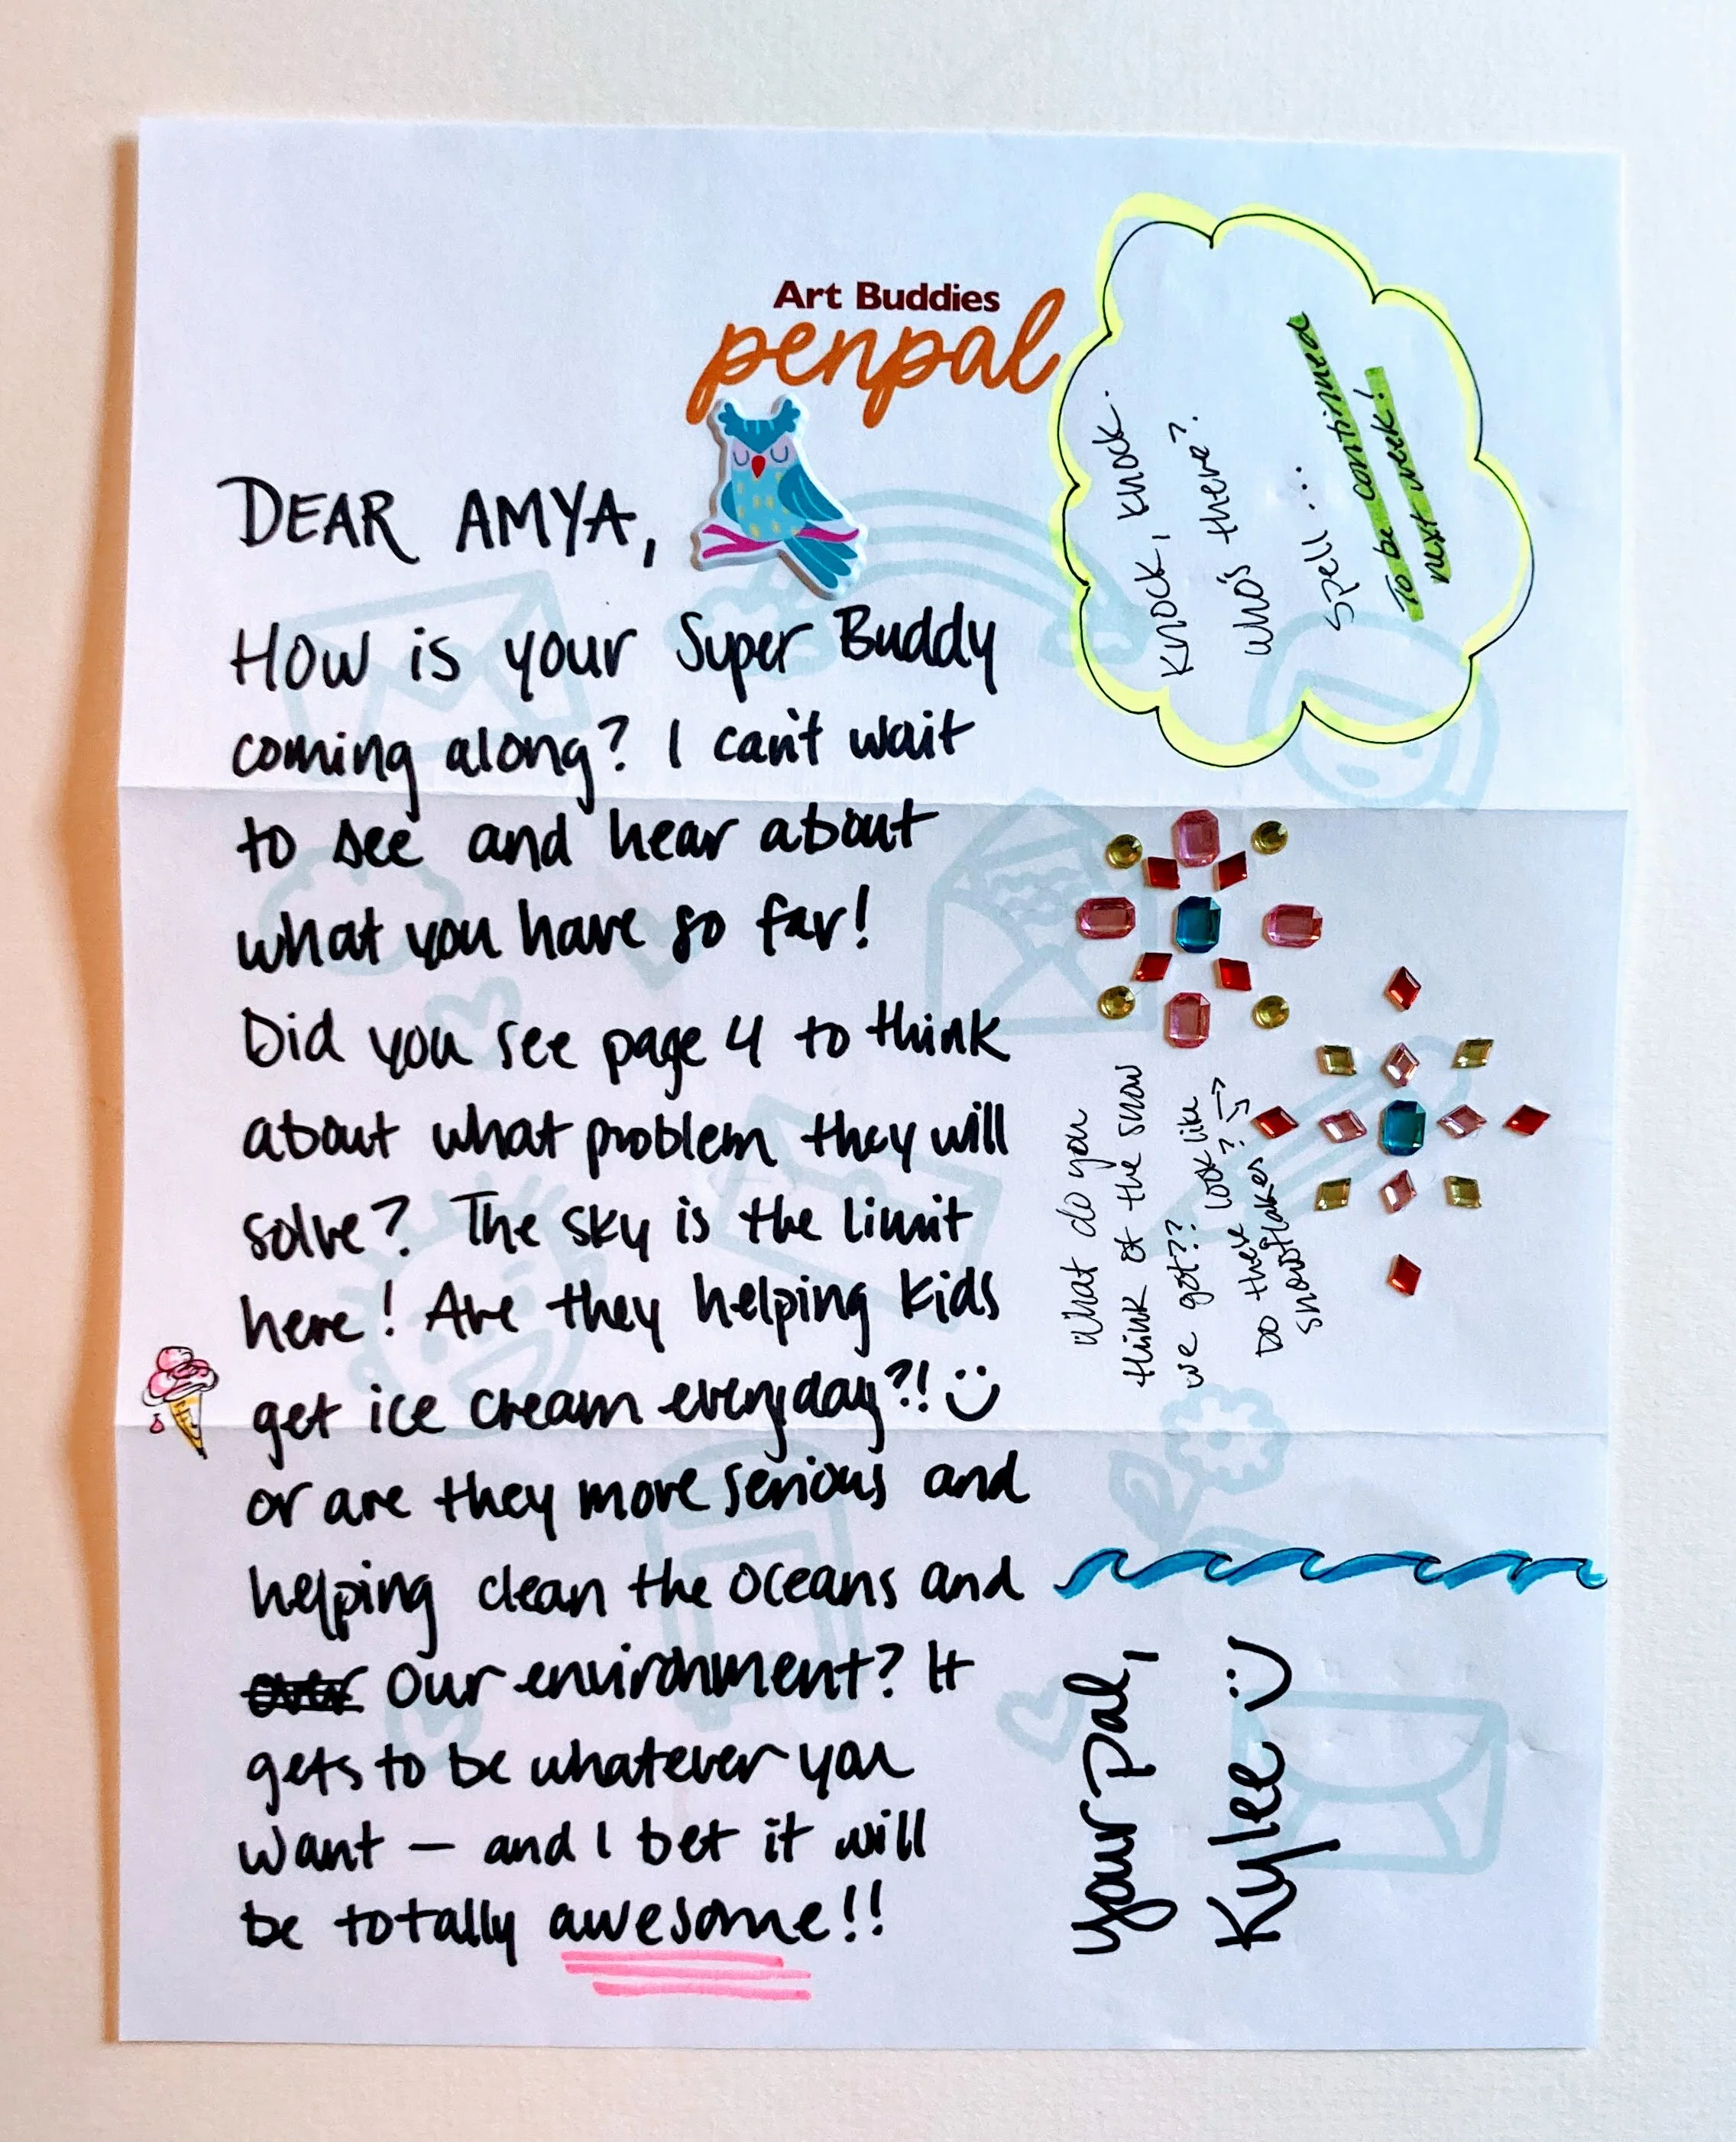 Art Buddies
penpal
DEAR AMYA,
How is your Super Buddy
coming along? I can't wait
to see and hear about
what you have so far!
Did you see page 4 to think
about what problem they will
solve? The sky is the limit
here! Are they helping kids
get ice cream everyday?! :)
or are they more serious and
helping clean the oceans and
our environment? It
gets to be whatever you
want — and I bet it will
be totally awesome!!
Knock, knock.
Who's there?
Spell ...
To be continued
next week!
What do you
think of the snow
we got?? Look like
Do these ?
snowflakes
your pal,
Kylee :)